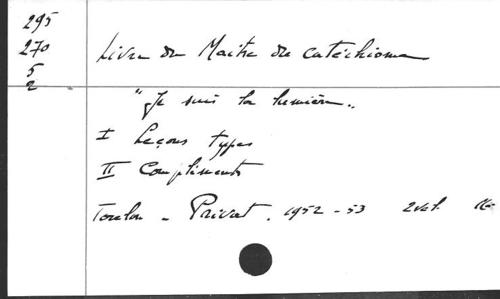 295
270
5
2
Livre du Maître du catéchisme
"Je suis la lumière"
I Leçons types
II Compléments
Toulon - Privat. 1952-53 2 vol.